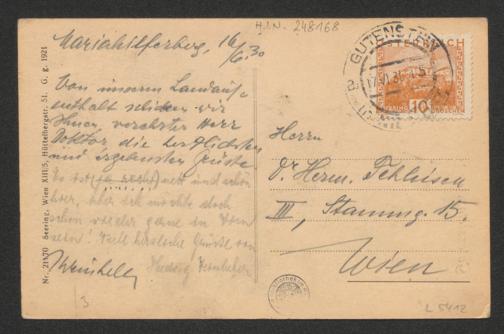 H.I.N. 248168
Mariahilferberg, 16/6.30
Von unserem Landauf-
enthalt schicken wir
Ihnen verehrter Herr
Doktor die herzlichsten
und ergebensten Grüsse.
Es ist (ja sehr) nett und schön
hier, aber ich möchte doch
schon wieder gerne in Wien
sein! Viele herzliche Grüsse von
Hedwig
Nr. 21170 Seering, Wien XIII/5, Hüttelbergstr. 51. G. g. 1921
GUTENSTEIN
ÖSTERREICH
10
GROSCHEN
Herrn
Dr. Herm.
III, Stammg. 15.
Wien
L 5412
3